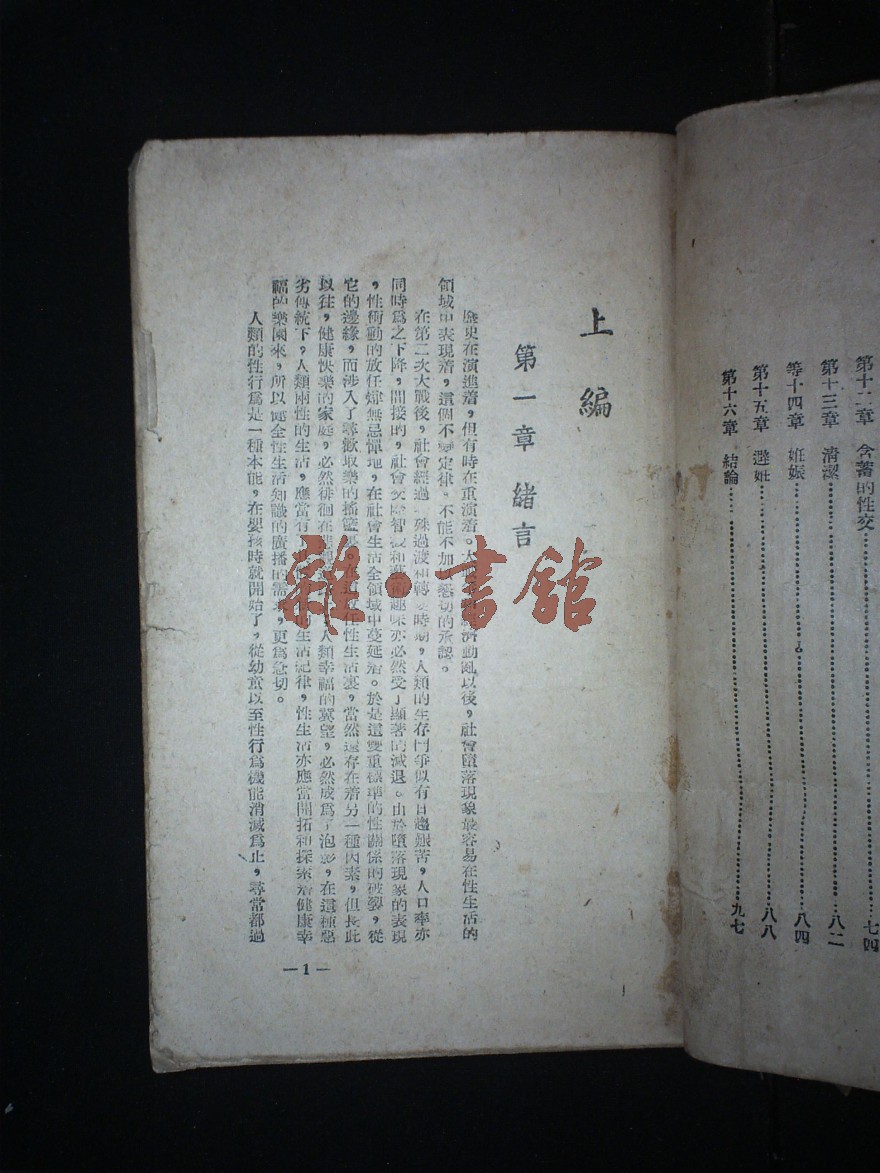 第十二章 含蓄的性交……七四
第十三章 清潔……八二
等十四章 姙娠……八四
第十五章 避姙……八八
第十六章 結論……九七
上編
第一章 緒言
歷史在演進着,但有時在重演着。大動亂以後,社會墮落現象最容易在性生活的
領域中表現着,這個不變定律,不能不加切的承認。
在第二次大戰後,社會經過殊過渡和轉時期,人類的生存鬥爭似有日趨艱苦,人口率亦
同時爲之下降,間接的,社會智趣味亦必然受了顯著的減退。由於墮落現象的表現
,性衝動的放任肆無忌憚地,在社會生活全領域中蔓延着。於是這雙重標準的性關係的破裂,從
它的邊緣,而涉入了尋歡取樂的搖籃放任性生活裏,當然還存在着另一種因素,但長此
以往,健康快樂的家庭,必然徘徊在人類幸福的冀望,必然成爲了泡影,在這種惡
劣傳統下,人類兩性的生活,應當有的生活紀律,性生活亦應當開拓和探索着健康幸
福的樂園來,所以健全性生活知識的廣播的需求,更爲急切。
人類的性行爲是一種本能,在嬰孩時就開始了,從幼童以至性行爲機能消滅爲止,尋常都過
—1—
雜·書館